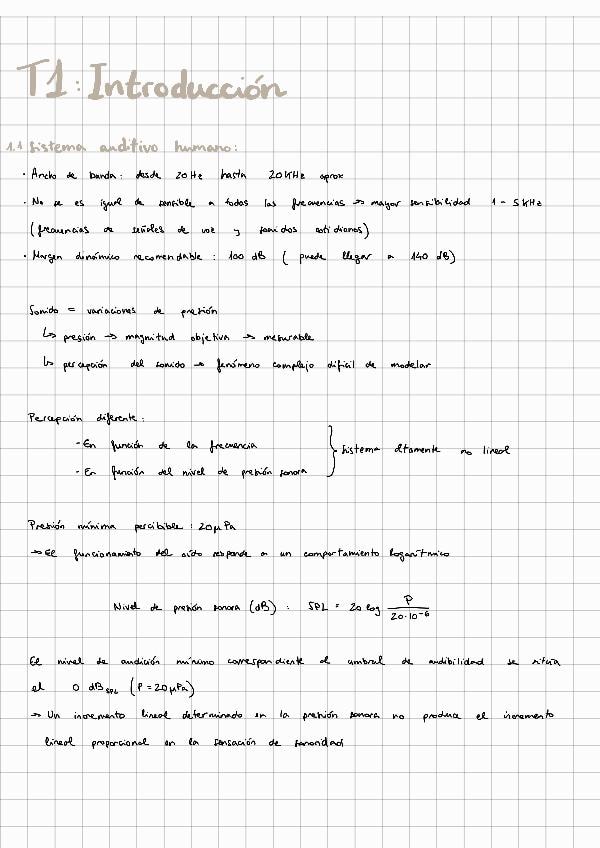 T1: Introducción
1.1 Sistema auditivo humano:
· Ancho de banda: desde 20Hz hasta 20KHz aprox
· No se es igual de sensible a todas las frecuencias → mayor sensibilidad 1 - 5KHz
(frecuencias de señales de voz y sonidos cotidianos)
· Margen dinámico recomendable: 100 dB (puede llegar a 140 dB)
Sonido = variaciones de presión
↳ presión → magnitud objetiva → mesurable
↳ percepción del sonido → fenómeno complejo dificil de modelar
Percepción diferente:
- En función de la frecuencia
- En función del nivel de presión sonora
} Sistema altamente no lineal
Presión mínima percibible: 20μPa
→ El funcionamiento del oído responde a un comportamiento logarítmico
Nivel de presión sonora (dB): SPL = 20 log P / 20·10⁻⁶
El nivel de audición mínimo correspondiente al umbral de audibilidad se situa
el 0 dB SPL (P = 20μPa)
→ Un incremento lineal determinado en la presión sonora no produce el incremento
lineal proporcional en la sensación de sonoridad